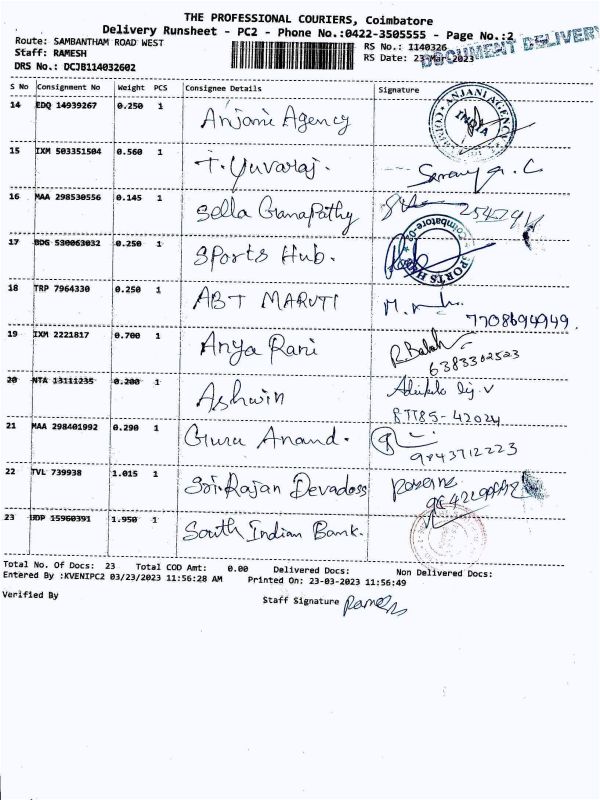 THE PROFESSIONAL COURIERS, Coimbatore
Delivery Runsheet - PC2 - Phone No.:0422-3505555 - Page No.:2
Route: SAMBANTHAM ROAD WEST
RS No.: 1140326
DOCUMENT DELIVERY
Staff: RAMESH
RS Date: 23-Mar-2023
DRS No.: DCJB114032602
S No Consignment No Weight PCS Consignee Details Signature
14 EDQ 14939267 0.250 1 Anjani Agency
ANJANI AGENCY
INDIA
15 IXM 503351504 0.560 1 T. Yuvaraj.
16 MAA 298530556 0.145 1 Sella Ganapathy
17 BDG 530063032 0.250 1 Sports Hub.
Coimbatore-02
SPORTS HUB
18 TRP 7964330 0.250 1 ABT MARUTI
7708694949.
19 IXM 2221817 0.700 1 Anya Rani R.Balah
6383302523
20 NTA 13111235 0.200 1 Ashwin
21 MAA 298401992 0.290 1 Guru Anand.
9843712223
22 TVL 739938 1.015 1 Sri.Rajan Devadoss
23 HDP 15960391 1.950 1 South Indian Bank.
Total No. Of Docs: 23 Total COD Amt: 0.00 Delivered Docs: Non Delivered Docs:
Entered By :KVENIPC2 03/23/2023 11:56:28 AM Printed On: 23-03-2023 11:56:49
Verified By Staff Signature Ramesh